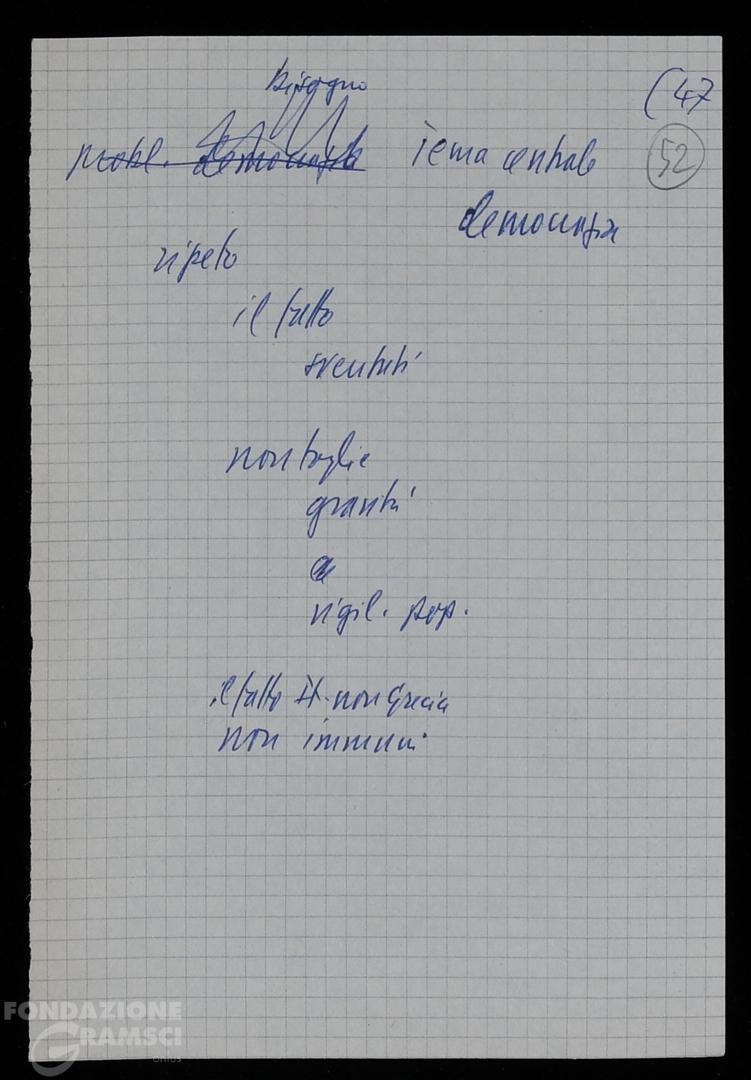 Bisogno
(47
probl. democrazia Tema centrale
52
democrazia
ripeto
il fatto
sventati
non toglie
gravità
a
vigil. pop.
il fatto It. non Grecia
non immuni
FONDAZIONE
GRAMSCI
onlus